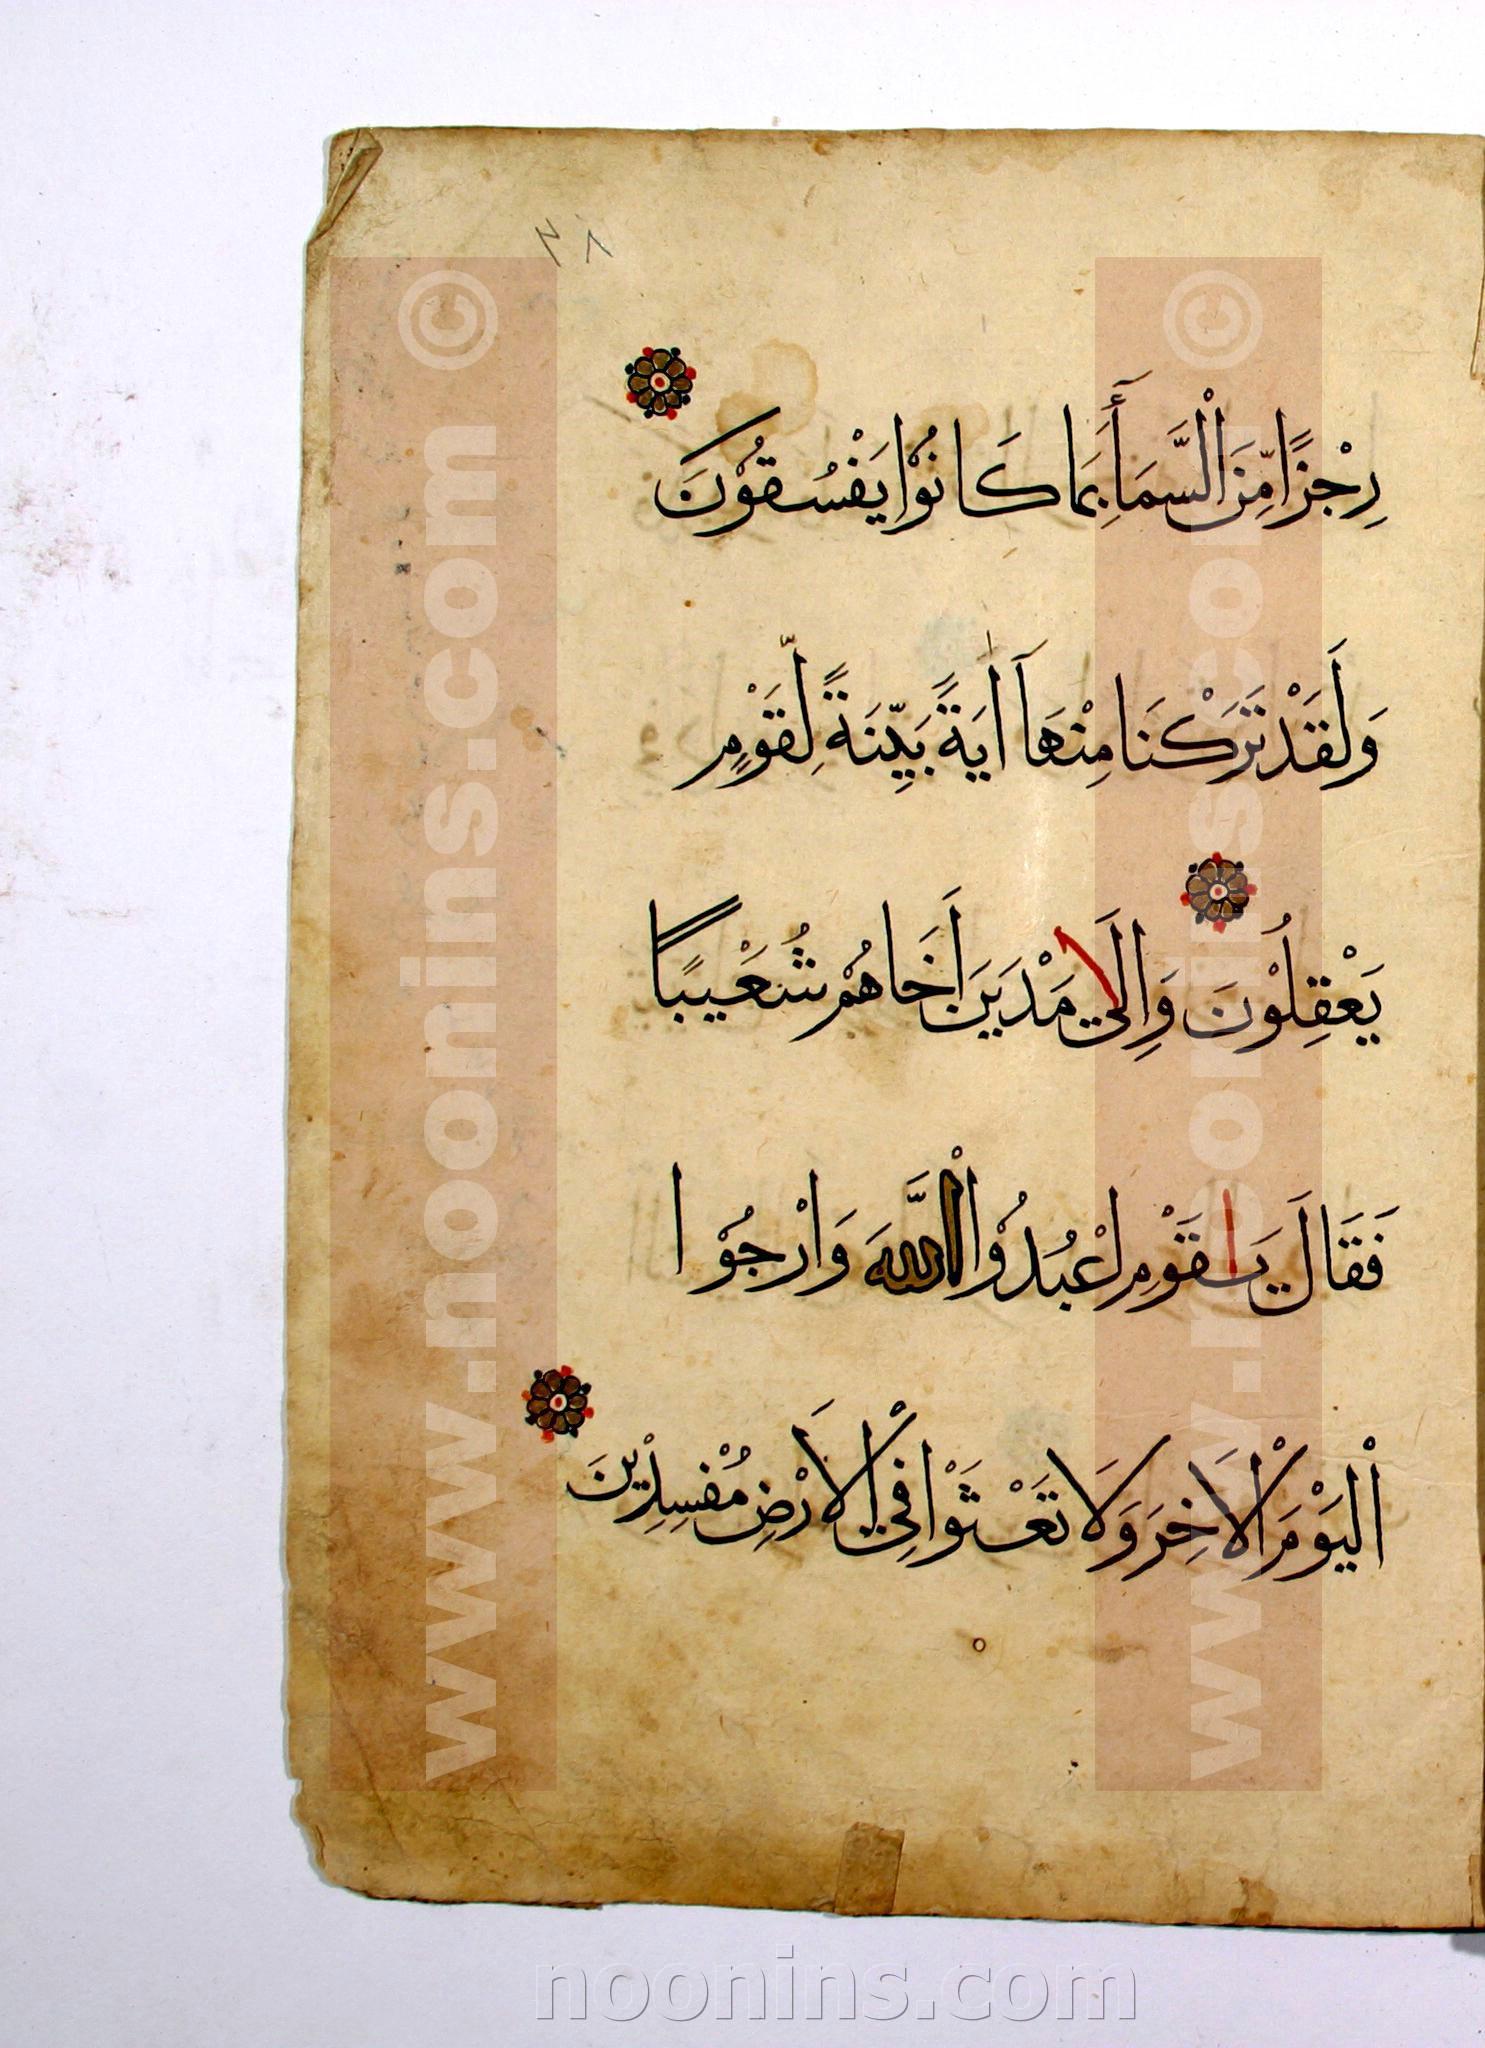 ٢٨
رِجْزًا مِّنَ الْسَّمَأَ بِمَا كَانُوْا يَفْسُقُوْنَ
وَلَقَدْ تَرَكْنَا مِنْهَآ اٰيَةً بَيِّنَةً لِّقَوْمٍ
يَعْقِلُوْنَ وَاِلَى مَدْيَنَ أَخَاهُمْ شُعَيْبًا
فَقَالَ يَاقَوْمِ اعْبُدُوْا اللَّهَ وَارْجُوْا
الْيَوْمَ الْاَخِرَ وَلَا تَعْثَوْا فِي الْاَرْضِ مُفْسِدِيْنَ
www.noonins.com ©
www.noonins.com ©
noonins.com